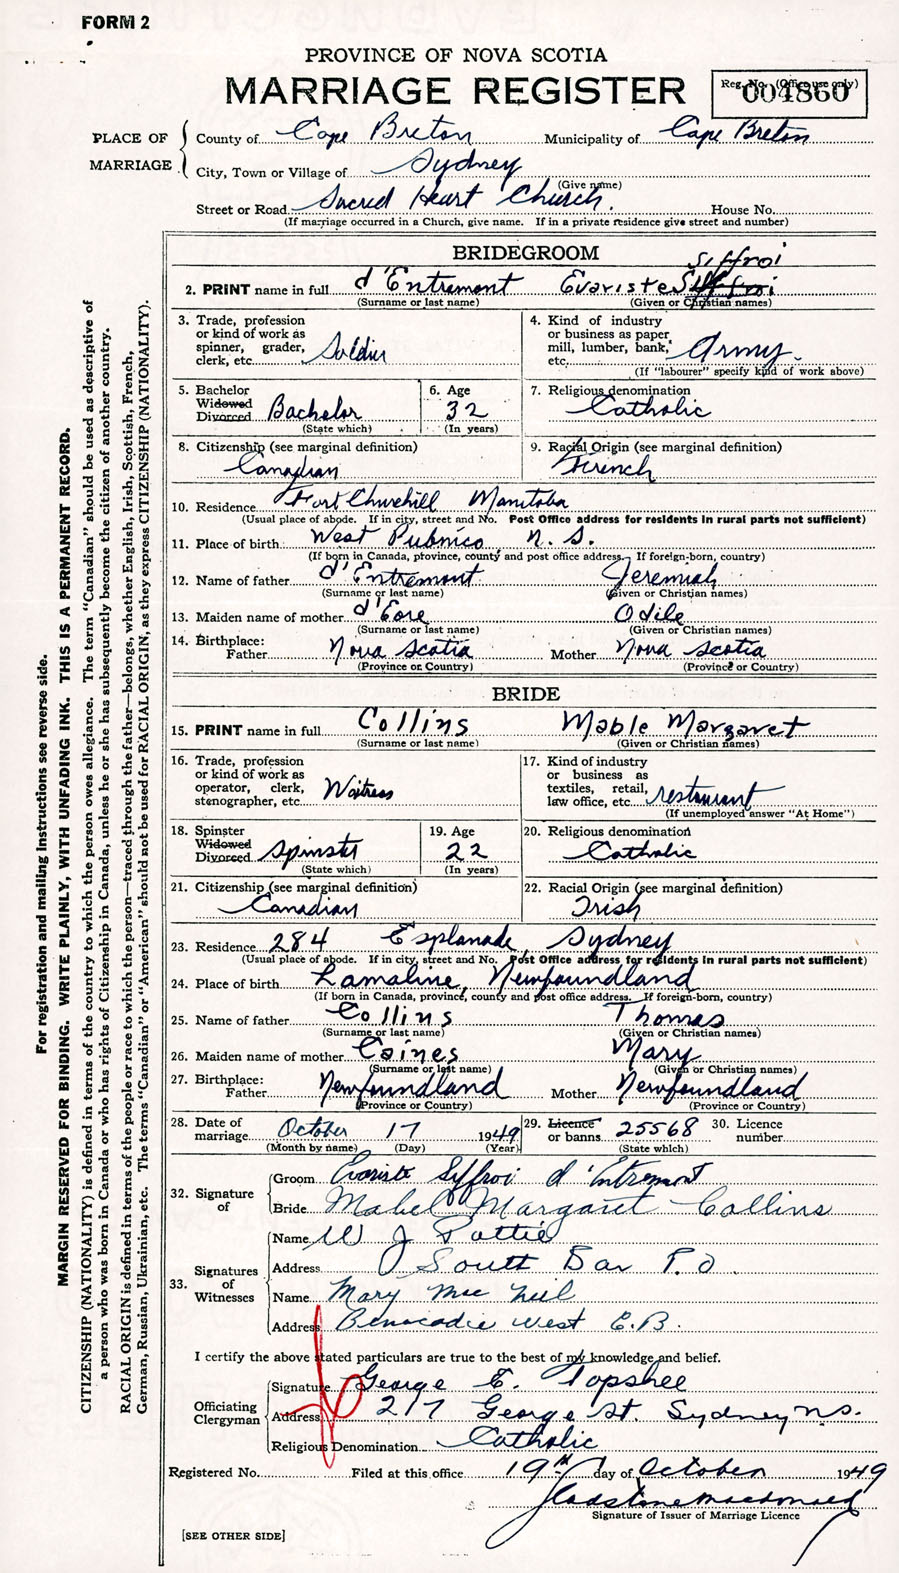 FORM 2
PROVINCE OF NOVA SCOTIA
MARRIAGE REGISTER
Reg. No. (Office use only)
004860
PLACE OF MARRIAGE
County of Cape Breton Municipality of Cape Breton
City, Town or Village of Sydney
(Give name)
Street or Road Sacred Heart Church. House No.
(If marriage occurred in a Church, give name. If in a private residence give street and number)
BRIDEGROOM
Siffroi
2. PRINT name in full d'Entremont Evariste Siffroi
(Surname or last name) (Given or Christian names)
3. Trade, profession or kind of work as spinner, grader, clerk, etc. Soldier
4. Kind of industry or business as paper mill, lumber, bank, etc. Army.
(If "labourer" specify kind of work above)
5. Bachelor Widowed Divorced Bachelor
(State which)
6. Age 32
(In years)
7. Religious denomination
Catholic
8. Citizenship (see marginal definition)
Canadian
9. Racial Origin (see marginal definition)
French
10. Residence Fort Churchill Manitoba
(Usual place of abode. If in city, street and No. Post Office address for residents in rural parts not sufficient)
11. Place of birth West Pubnico N. S.
(If born in Canada, province, county and post office address. If foreign-born, country)
12. Name of father d'Entremont Jeremiah
(Surname or last name) (Given or Christian names)
13. Maiden name of mother d'Eore Odile
(Surname or last name) (Given or Christian names)
14. Birthplace:
Father Nova Scotia Mother Nova Scotia
(Province or Country) (Province or Country)
BRIDE
15. PRINT name in full Collins Mable Margaret
(Surname or last name) (Given or Christian names)
16. Trade, profession or kind of work as operator, clerk, stenographer, etc. Waitress
17. Kind of industry or business as textiles, retail, law office, etc. restaurant
(If unemployed answer "At Home")
18. Spinster Widowed Divorced Spinster
(State which)
19. Age 22
(In years)
20. Religious denomination
Catholic
21. Citizenship (see marginal definition)
Canadian
22. Racial Origin (see marginal definition)
Irish
23. Residence 284 Esplanade, Sydney
(Usual place of abode. If in city, street and No. Post Office address for residents in rural parts not sufficient)
24. Place of birth Lamaline, Newfoundland
(If born in Canada, province, county and post office address. If foreign-born, country)
25. Name of father Collins Thomas
(Surname or last name) (Given or Christian names)
26. Maiden name of mother Caines Mary
(Surname or last name) (Given or Christian names)
27. Birthplace:
Father Newfoundland Mother Newfoundland
(Province or Country) (Province or Country)
28. Date of marriage October 17 1949
(Month by name) (Day) (Year)
29. Licence or banns 25568
(State which)
30. Licence number
32. Signature of
Groom Evariste Siffroi d'Entremont
Bride Mabel Margaret Collins
33. Signatures of Witnesses
Name W J Pottie
Address South Bar P.O.
Name Mary Mac Neil
Address Benacadie West C.B.
I certify the above stated particulars are true to the best of my knowledge and belief.
Officiating Clergyman
Signature George E. Topshee
Address 217 George St. Sydney N.S.
Religious Denomination Catholic
Registered No. Filed at this office 19th day of October 1949
Gladstone MacDonald
Signature of Issuer of Marriage Licence
[SEE OTHER SIDE]
For registration and mailing instructions see reverse side.
MARGIN RESERVED FOR BINDING. WRITE PLAINLY, WITH UNFADING INK. THIS IS A PERMANENT RECORD.
CITIZENSHIP (NATIONALITY) is defined in terms of the country to which the person owes allegiance. The term "Canadian" should be used as descriptive of
a person who was born in Canada or who has rights of Citizenship in Canada, unless he or she has subsequently become the citizen of another country.
RACIAL ORIGIN is defined in terms of the people or race to which the person—traced through the father—belongs, whether English, Irish, Scottish, French,
German, Russian, Ukrainian, etc. The terms "Canadian" or "American" should not be used for RACIAL ORIGIN, as they express CITIZENSHIP (NATIONALITY).